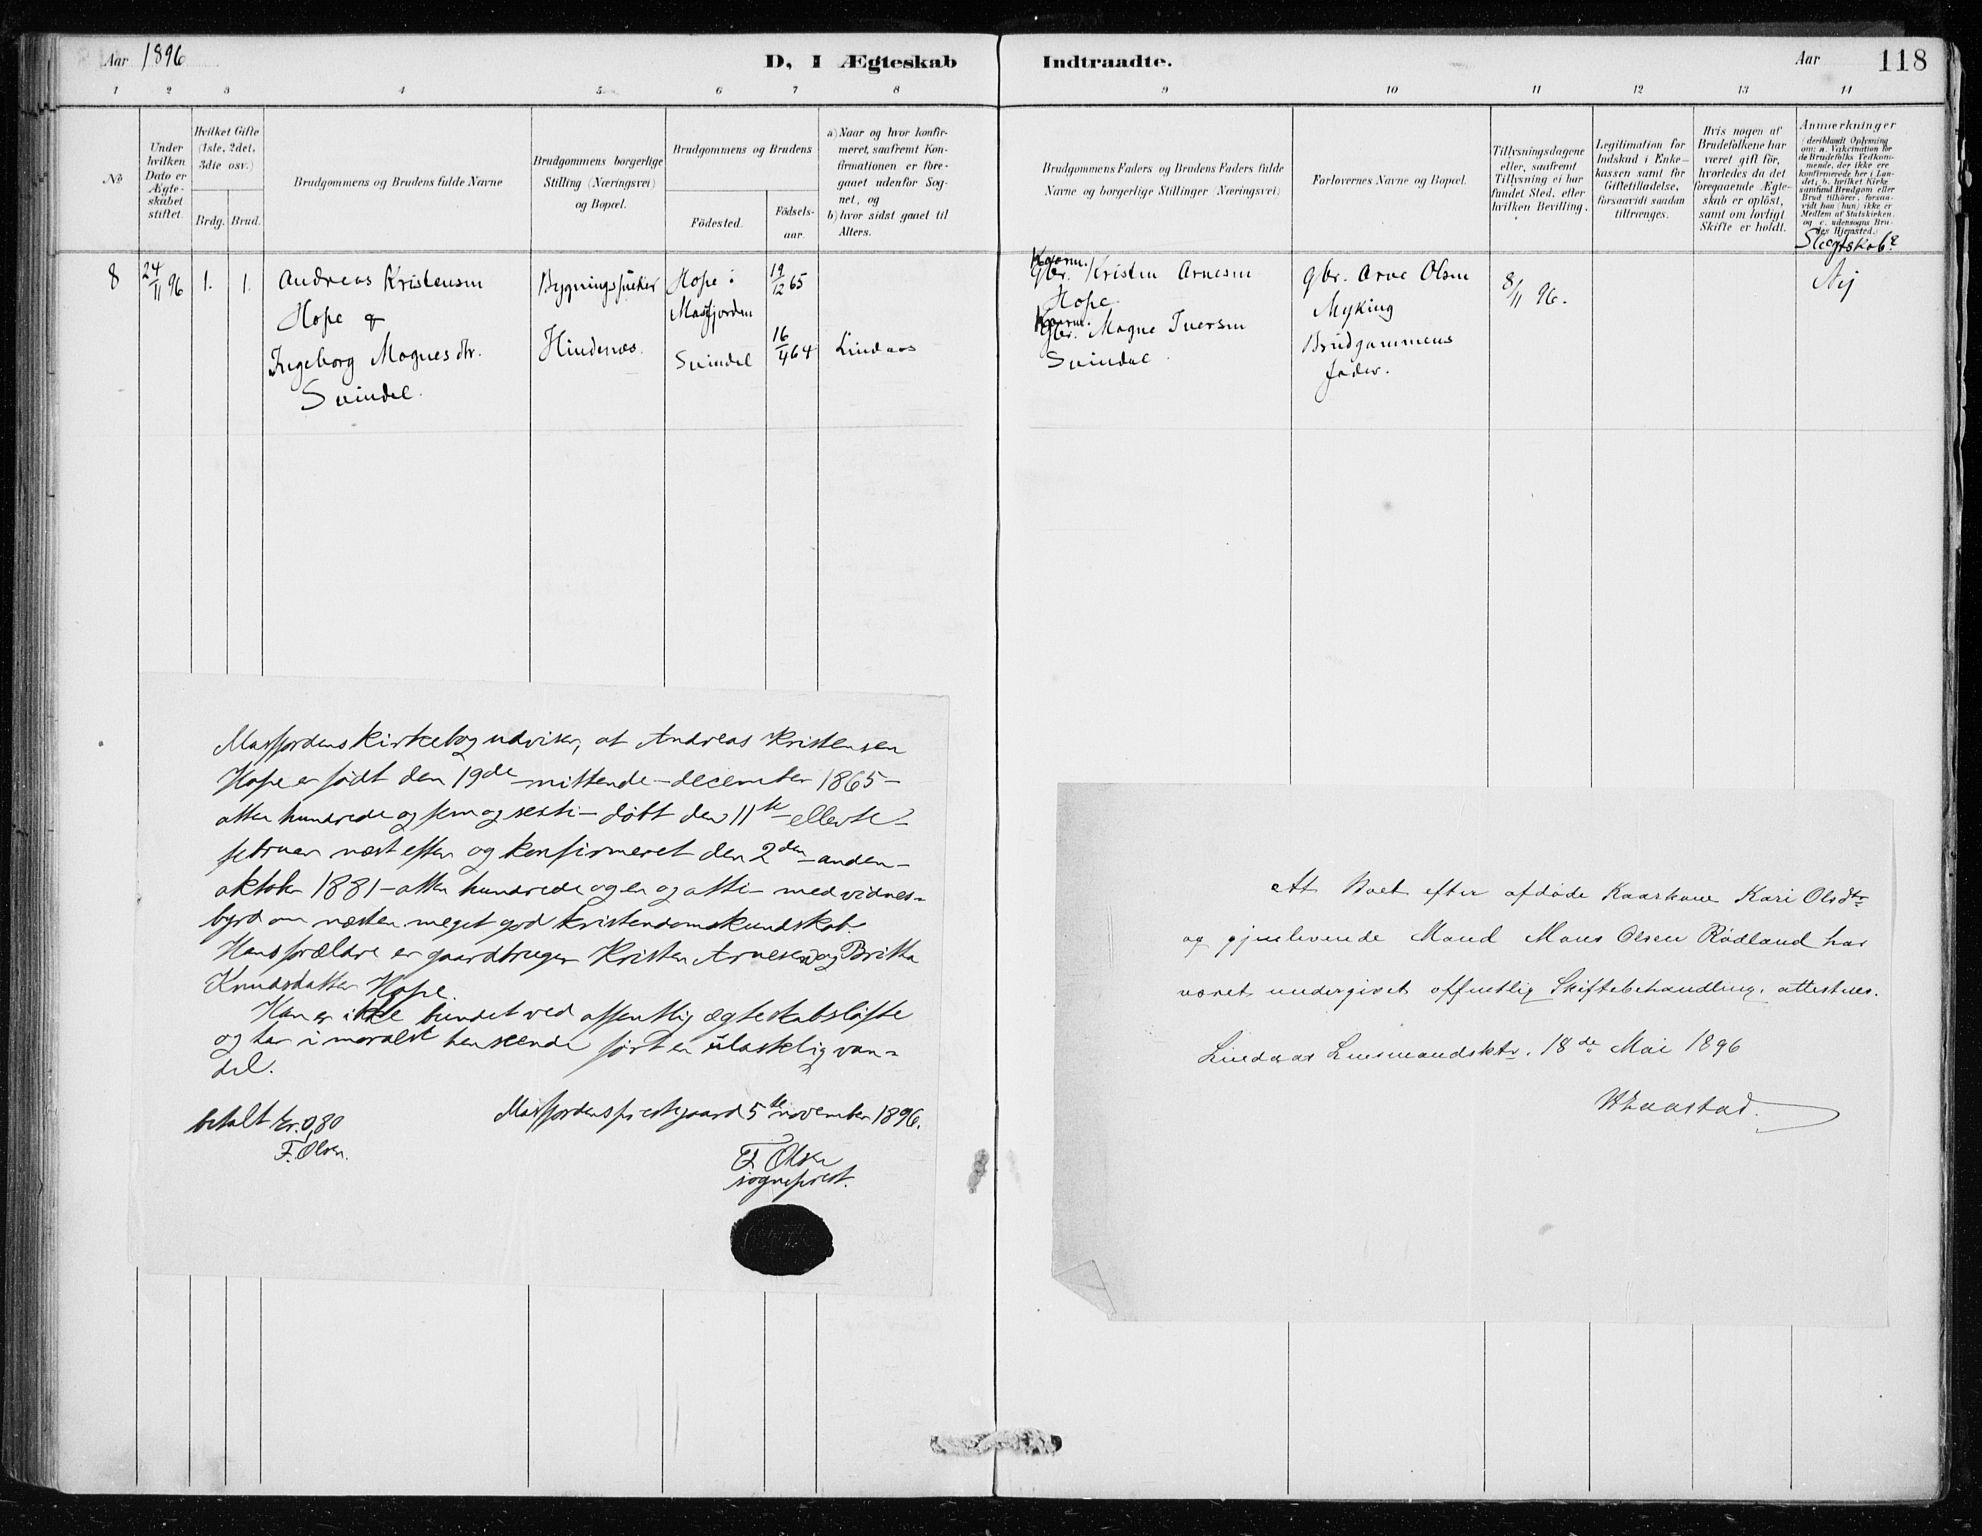 Aar 1896
D, I Ægteskab
Indtraadte.
Aar
118
1 2 3 4 5 6 7 8 9 10 11 12 13 14
No
Under hvilken Dato er Ægte-skabet stiftet.
Hvilket Gifte (1ste, 2det, 3die osv.)
Brdg. Brud.
Brudgommens og Brudens fulde Navne
Brudgommens borgerlige Stilling (Næringsvei) og Bopæl.
Brudgommens og Brudens
Födested.
Födsels-aar.
a) Naar og hvor konfir-meret, saafremt Kon-firmationen er fore-gaaet udenfor Sog-net, og
b) hvor sidst gaaet til Alters.
Brudgommens Faders og Brudens Faders fulde Navne og borgerlige Stillinger (Næringsvei)
Forlovernes Navne og Bopæl.
Tillysningsdagene eller, saafremt Tillysning ei har fundet Sted, efter hvilken Bevilling.
Legitimation for Indskud i Enke-kassen samt for Giftetilladelse, forsaavidt saadan tiltrænges.
Hvis nogen af Brudefolkene har været gift för, hvorledes da det foregaaende Ægte-skab er oplöst, samt om lovligt Skifte er holdt.
Anmærkninger
(deriblandt Oplysning om: a. Vakcination for de Brudefolks Vedkom-mende, der ikke ere konfirmerede her i Lan-det; b. hvilket Kirke-samfund Brudgom eller Brud tilhörer, forsaa-vidt han (hun) ikke er Medlem af Statskirken, og c. udensogns Bru-des Hjemsted.)
Slegtskab?
8 24/11 96 1. 1. Andreas Kristensen Bygningssnekker Hope i 19/12 65 Kaarm. Gbr. Kristen Arnesen gbr. Arne Olsen 8/11 96. Nej
Hope & Masfjorden Hope. Myking
Ingeborg Magnesdtr. Hindenæs. Svindel 16/4 64 Lindaas Kaarm. Gbr. Magne Iversen Brudgommens
Svindel. Svindal. fader.
Masfjordens kirkebog udviser, at Andreas Kristensen
Hope er født den 19de - nittende - december 1865 -
atten hundrede og fem og sexti - døbt den 11te - ellevte -
februar næst efter og konfirmeret den 2den - anden -
oktober 1881 - atten hundrede og en og otti - med vidnes-
byrd om næsten meget god kristendomskundskab.
Hans forældre er gaardbruger Kristen Arnesen og Britha
Knudsdatter Hope.
Han er ikke bundet ved offentlig ægteskabsløfte
og har i moralsk henseende ført en ulastelig van-
del.
Masfjordens prestegaard 5te november 1896.
betalt kr. 0,80
F. Olsen.
F. Olsen
sogneprest.
At Boet efter afdøde Kaarkone Kari Olsdtr
og gjenlevende Mand Mons Olsen Rødland har
været undergivet offentlig Skiftebehandling, attesteres.
Lindaas Lensmandsktr. 18de Mai 1896